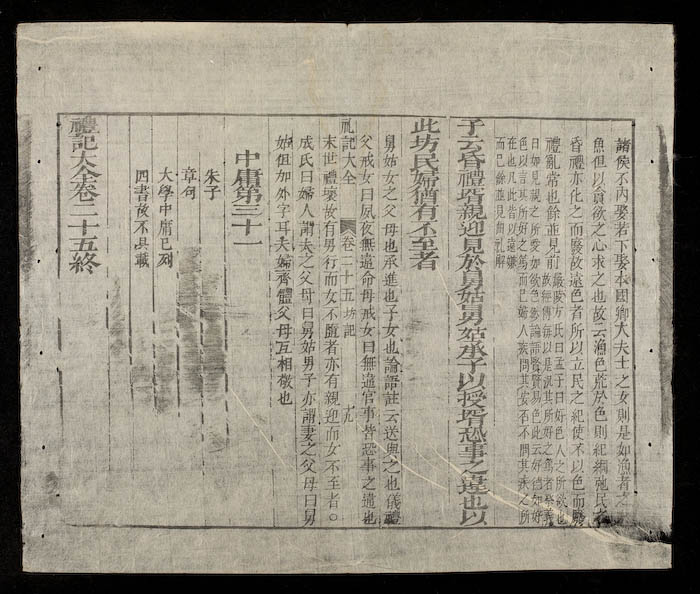 諸侯不內娶若下娶本國卿大夫士之女則是如漁者之
魚但以貪欲之心求之也故云漁色荒於色則紀綱弛民
昏禮亦化之而廢故遠色者所以立民之紀使不以色而廢
禮亂常也餘並見前
嚴陵方氏曰孟子曰好色人之所欲也
曰如見視之所愛如欲色然論語賢賢易色此云好德如好
色以言其所好之篤而已婦人疾問其疾否不問其疾之所
在也凡此皆以遠嫌
而已餘並見曲禮解
子云昏禮壻親迎見於舅姑舅姑承子以授壻恐事之違也以
此坊民婦猶有不至者
舅姑女之父母也承進也子女也論語註云送與之也儀禮
父戒女曰夙夜無違命母戒女曰無違宮事皆恐事之違也
禮記大全 卷二十五 坊記 十九
末世禮壞故有男行而女不隨者亦有親迎而女不至者○
成氏曰婦人謂夫之父母曰舅姑男子亦謂妻之父母曰舅
姑但加外字耳夫婦齊體父母互相敬也
中庸第三十一
朱子
章句
大學中庸已列
四書故不具載
禮記大全卷二十五終